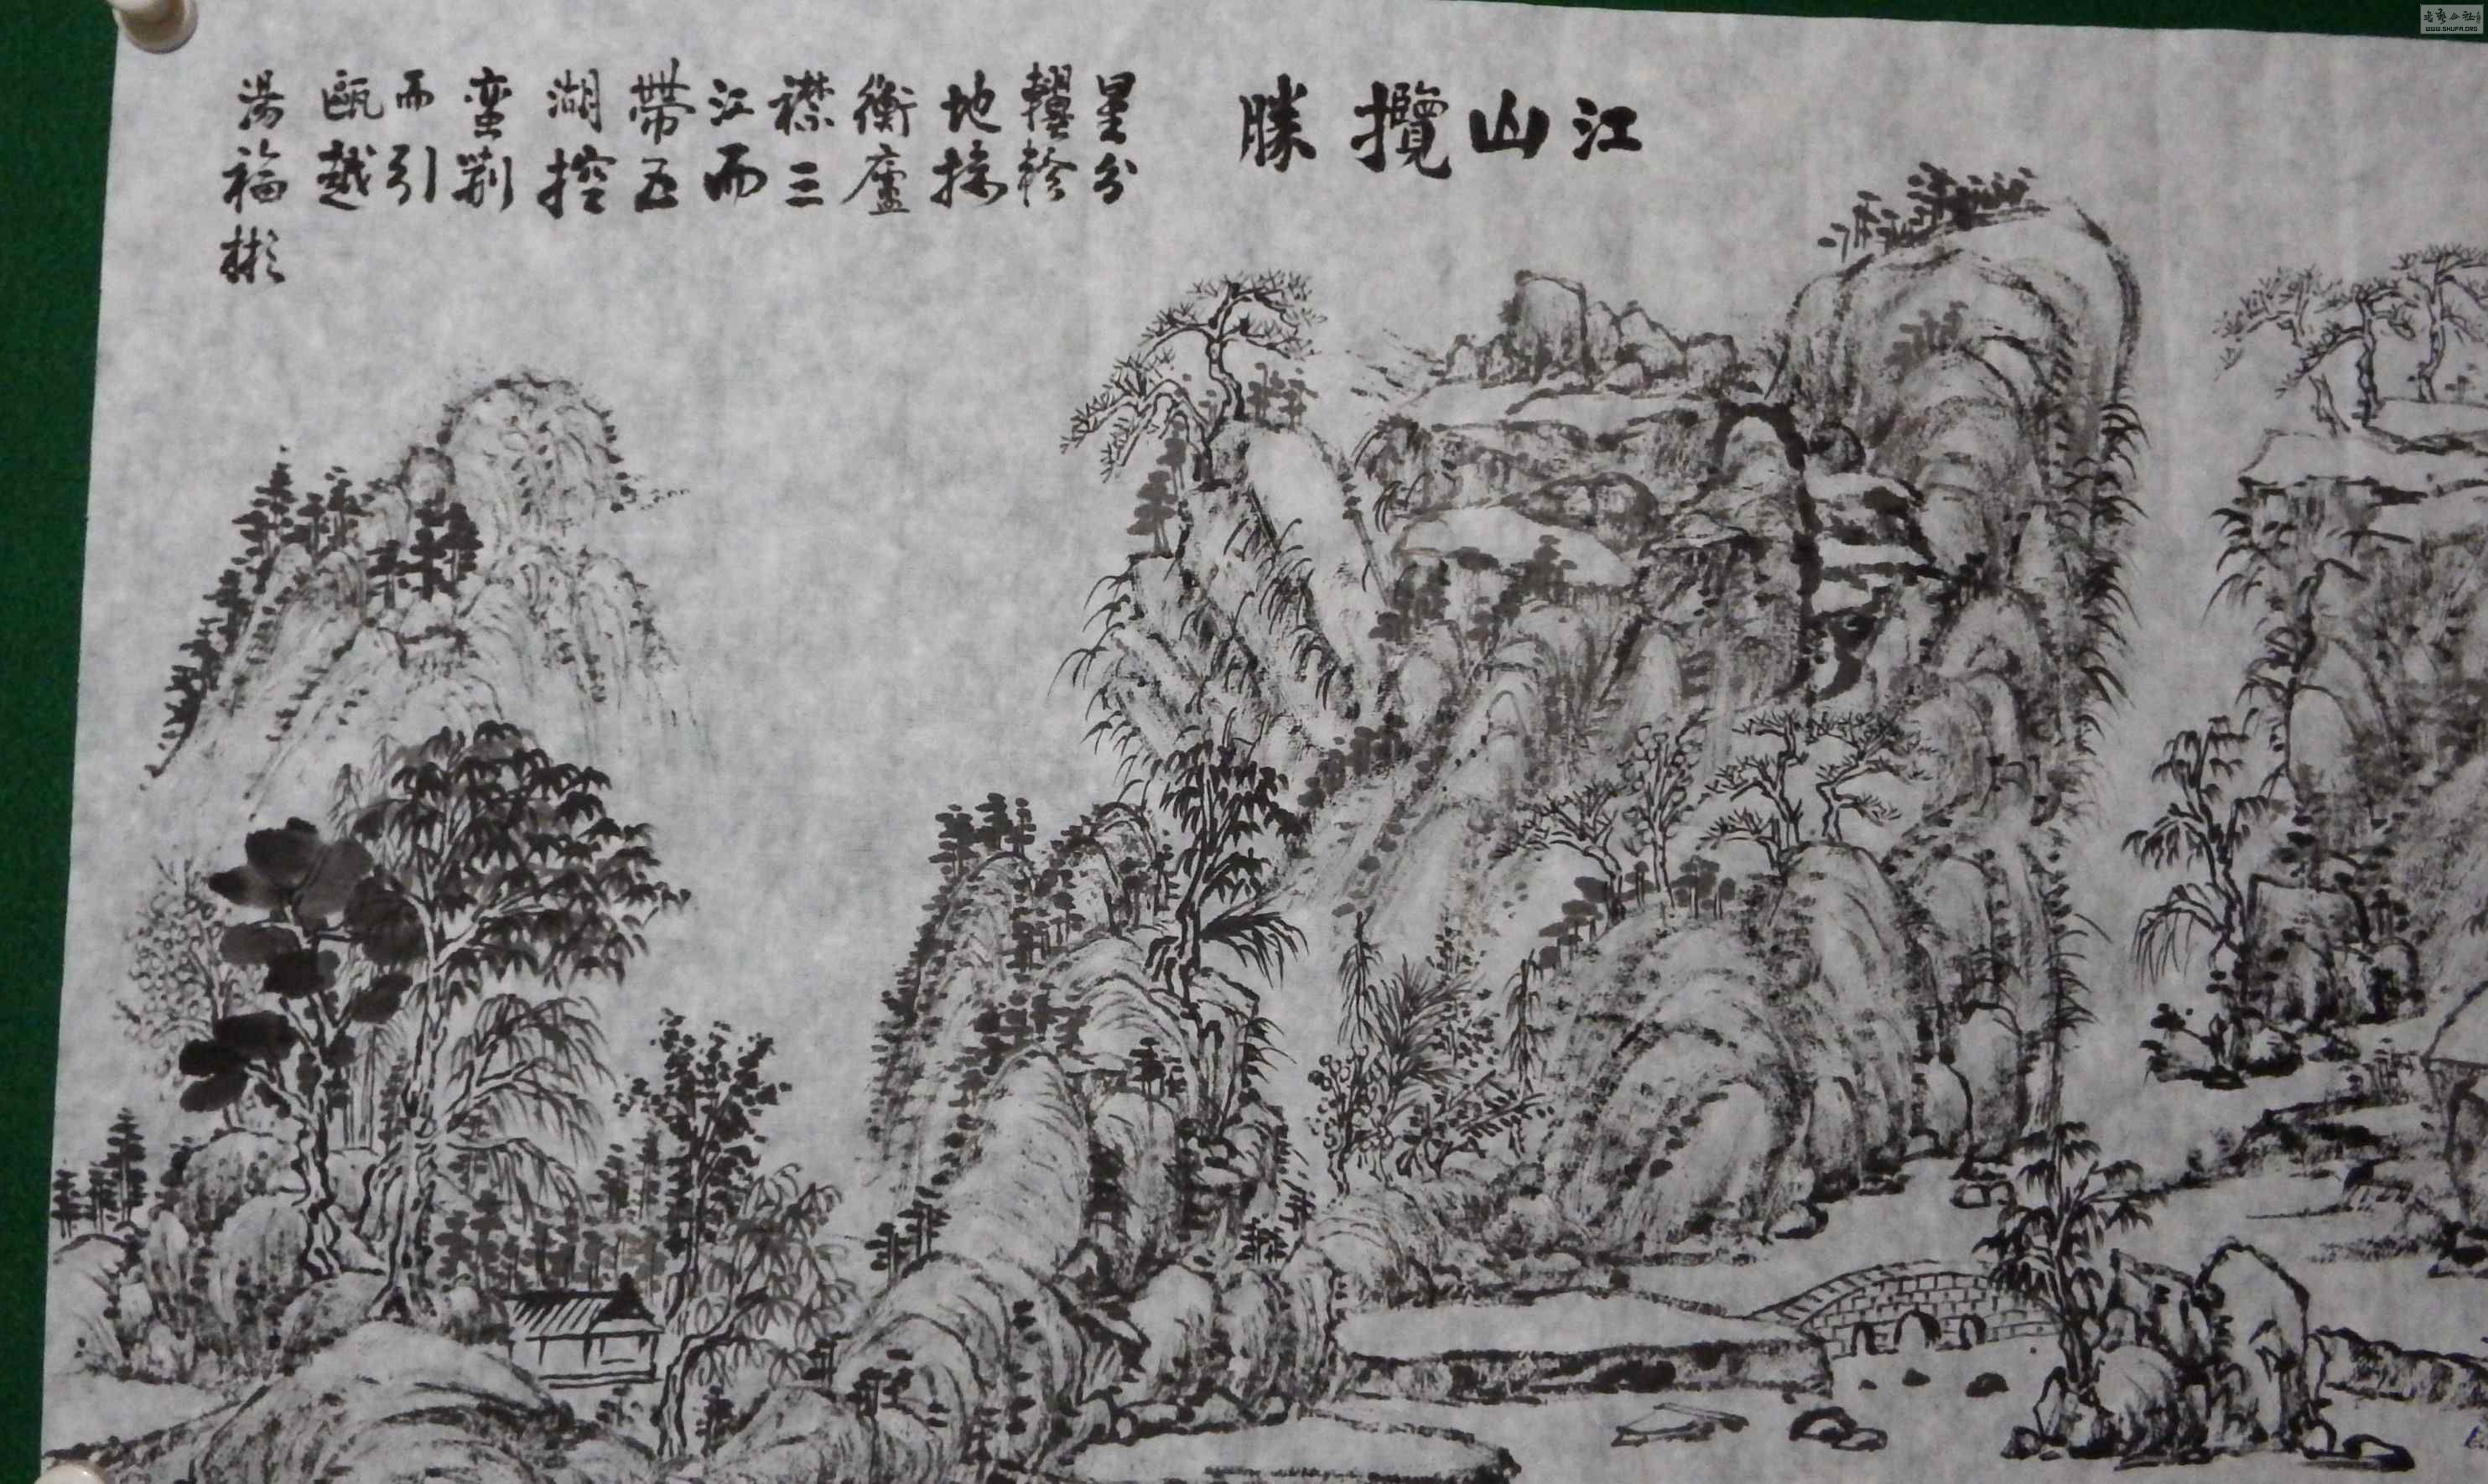 江山攬勝
星分
軫
地接
衡廬
襟三
江而
帶五
湖控
蛮荆
而引
甌越
湯福彬
WWW.SHUFA.ORG